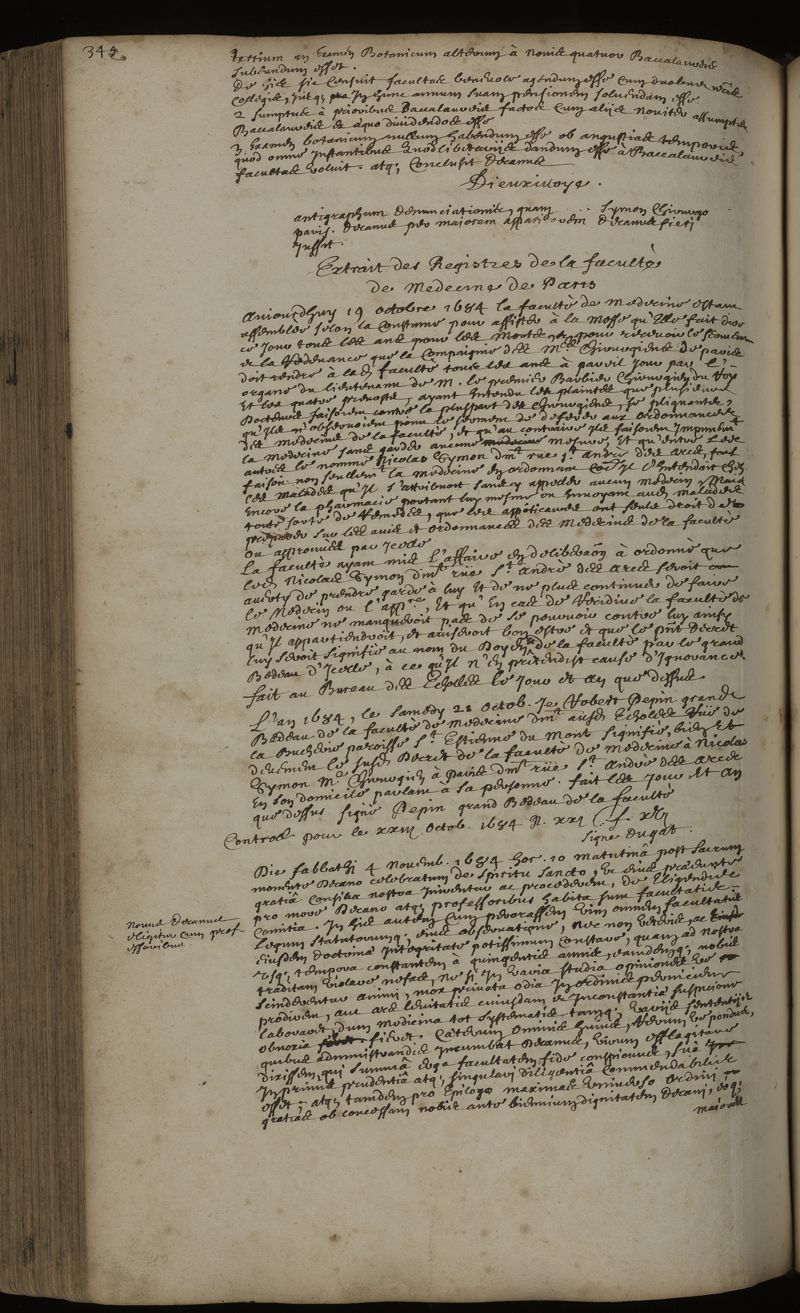 345.
tertium an Examen Botanicum alterum à novis quatuor Baccalaureis
subeundum esset.
De his sic Censuit facultas benevole agendum esse cum duobus
Collegis, suam pensionem solvendam esse
2 sumptus à prioribus Baccalaureis factos cum aliis noviter assumptis
Baccalaureis ex aequo dividendos esse
3 Examen botanicum nullum habendum esse ob angustias temporis
quod omne instantibus Quodlibetariis dandum esse à Baccalaureis
facultas voluit. atq; Conclusit Decanus
Dieuxivoye.
antigraphum denunciationis, quam Symon Chirurgo
paris. Decanus per majorem apparitorem Decanus fieri
jussit.
Extrait des Registres de la faculté
de Medecine de Paris
Aujourdhuy 19 octobre 1684 la faculté de medecine estant
assemblée selon la Coustume pour assister à la Messe qu'Elle fait dire
ce jour tous les ans pour les Morts, et pour recevoir le serment
et la Redevance que la Compaignie des Mes Chirurgiens de paris
doit rendre à lad. faculté tous les ans à pareil jour par l'
organe du lieutenant de M. le premier Barbier Chirurgien du Roy
Et les quatre prevosts, ayant Entendu les plaintes que plusieurs
Docteurs faisoient contre la pluspart des Chirurgiens, se plignants,
qu'ils n'observoient point le serment de deferer aux ordonnances
des medecins de la faculté, et qu'au contraire ils faisoient impunemt
la medecine sans garder aucune mesure, Et qu'entre les
autres le nommé Nicolas Symon dmt rue St andré des arcs, fais
faisoit non seullemt la medecine en ordonnant
les malades qu'il s'attribuoit sans y appeller aucun medecin, Mais
Encore la pharmacie portant luy mesme ou Envoyant aud. malades
toute sorte de remedes, que les appoticaires ont seuls droit de
preparer sur les avis et ordonnances des medecins de la faculté
ou approuvés par Icelle
La faculté ayant mis l'affaire en deliberaon à ordonné que
led. Nicolas Symon dmt rüe St André des arcs seroit
averty de prendre garde à luy Et de ne plus continuer de faire
le Medecin ou l'appre, Et qu'En cas de Recidive la faculté de
medecine ne manqueroit pas de se pourvoir contre luy ainsy
qu'il appartiendroit, et auseront bon estre et que le pnt decret
luy seroit signifié au nom du Doyen de la faculté par le grand
Bedeau d'Icelle, à ce qu'il n'En pretendist cause d'ignorance.
fait au Bureau des Escholles le jour et an que dessus
L'an 1684, le samedy 21 octob. Je Robert Pepin grand
Bedeau de la faculté de Medecine dmt ausd. Escholles Rüe de
la Bucherie paroisse St Estienne du Mont signifié, bien et
deuement le susd. Decret de la faculté de Medecine à Nicolas
Symon Me Chirurgien à Paris dmt rüe St André des Arcs
En son domicile parlant à sa personne. fait les jour Et an
que dessus signé Pepin grand Bedeau de la faculté
Controllé pour le xxiij. octob. 1684
signé Dugat.
Die sabbathi 4 Novemb. 1684 hor. 10 matutina post sacrum
monente Decano celebratum de spiritu sancto, ut eius praeeunte
gratia Consilia nostra inirentur ac procederent, de Eligendis
pro more Decano atq; professoribus habita sunt facultatis
Comitia. In his autem cum perorassem vim omnem facultatis
Legum statutorumq; eius observatione, nec non veteris, ac
Eiusdem doctrinae Integritate potissimum Constare, quam ad nostra
usq; tempora constantem à quingentis annis, eamdemq; nobis
traditam violare nefas, ne si in varia studia opinionesve
scinderentur animi, mox privata odia in ordinis perniciem
prodirent, aut ars levitatis cuiusdam et Inconstantiae suspicione
laboraret, dum medicina tot systematis tamq; variis sententiis
obnoxia fieret. Caeterum omnibus
quibus administrandis incumbat Decanus,
dixissem, qui summa erga facultatem fide conspicuus, sua
Inprimis prudentia atq; singulari diligentia Commendabilis
esset; atq; tandem pro Epilogo maximas ordini
gratias ob concessam nobis ante biennium dignitatem Decani,
majores
Novus Decanus
eligitur cum prof-
essoribus